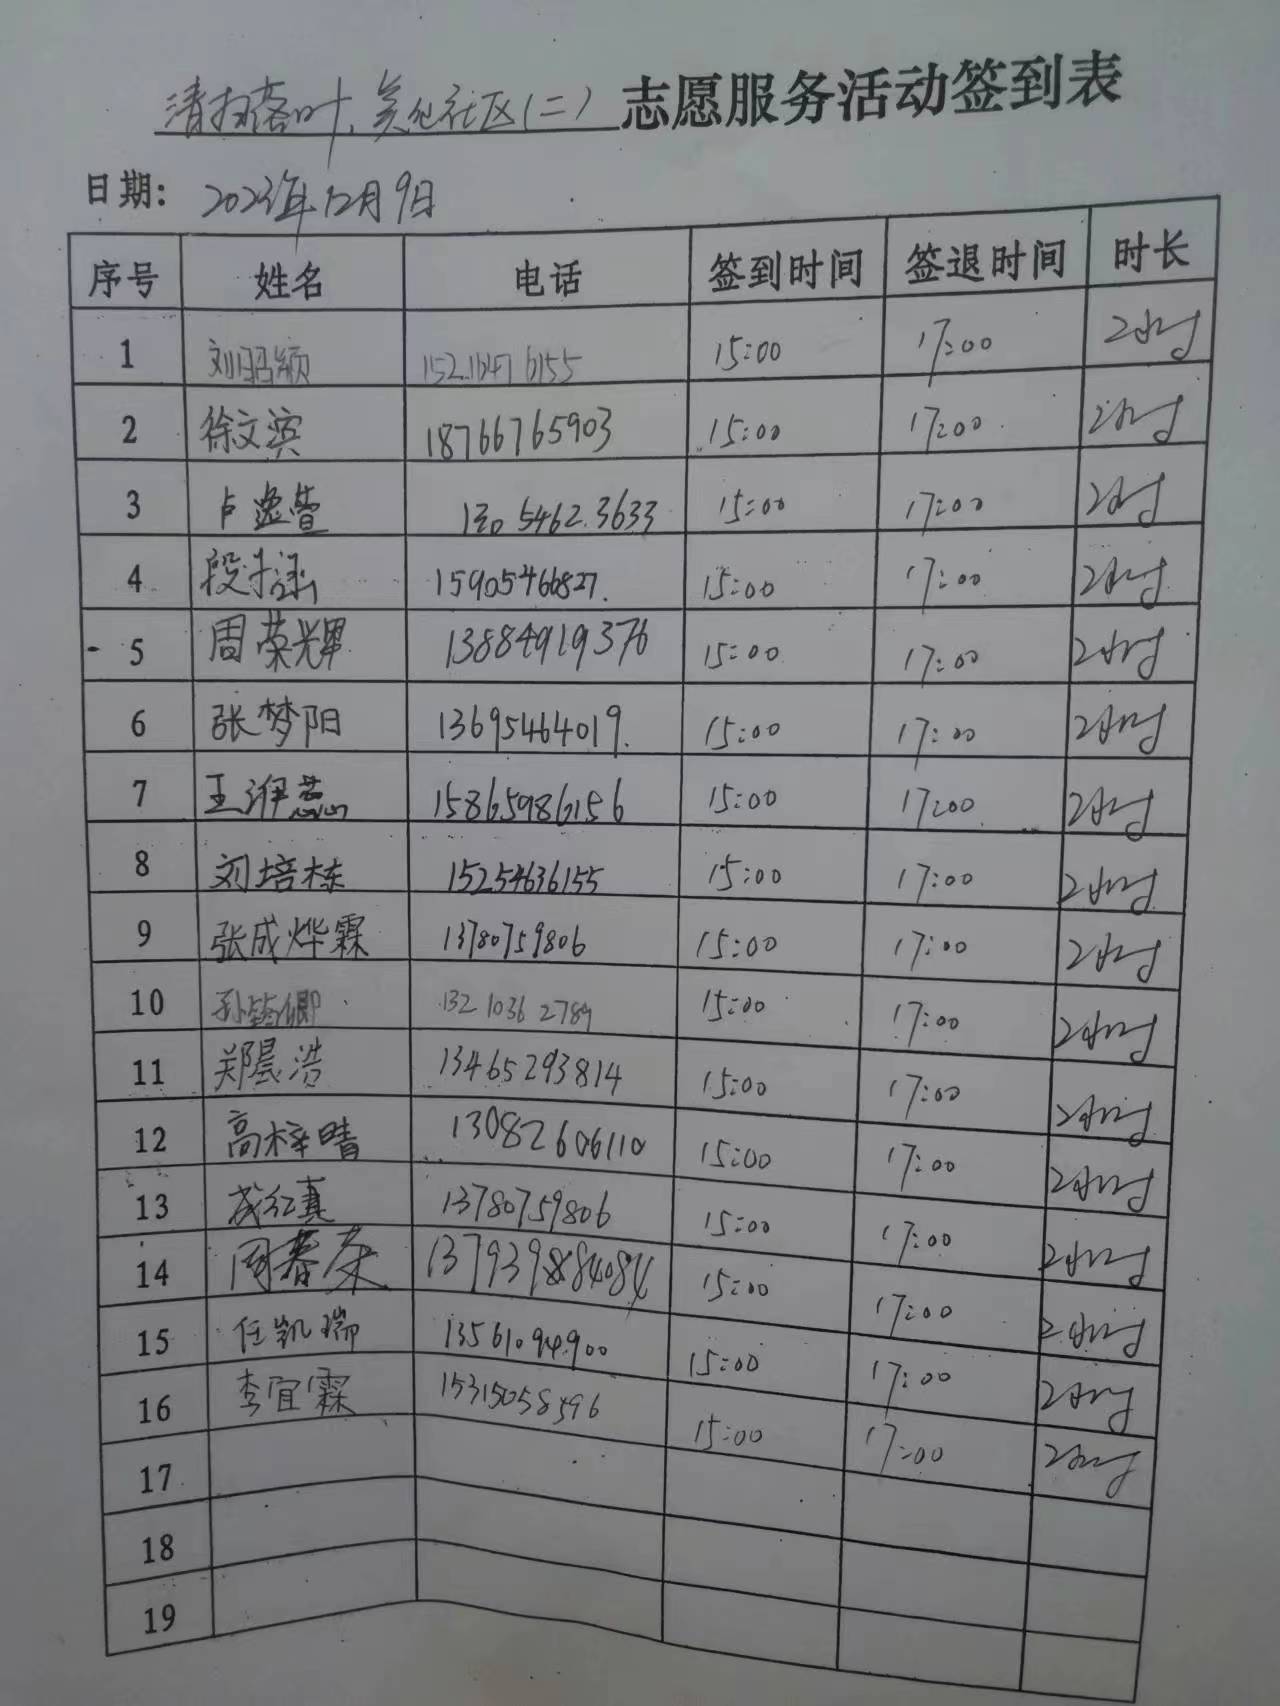 清扫落叶，美化社区（二）志愿服务活动签到表
日期：2023年12月9日
序号 姓名 电话 签到时间 签退时间 时长
1 刘昭颖 152.1647 6155 15:00 17:00 2小时
2 徐文滨 18766765903 15:00 17:00 2小时
3 卢逸萱 130 5462.3633 15:00 17:00 2小时
4 段 涵 15905466827. 15:00 17:00 2小时
5 周荣辉 13884919376 15:00 17:00 2小时
6 张梦阳 13695464019. 15:00 17:00 2小时
7 王 蕊 15865986156 15:00 17:00 2小时
8 刘培栋 15254636155 15:00 17:00 2小时
9 张成烨霖 13780759806 15:00 17:00 2小时
10 孙 卿 132 1036 2789 15:00 17:00 2小时
11 郑晨浩 13465293814 15:00 17:00 2小时
12 高梓晴 13082606110 15:00 17:00 2小时
13 成红真 13780759806 15:00 17:00 2小时
14 周春 15:00 17:00 2小时
15 任凯瑞 13561094900 15:00 17:00 2小时
16 李宜霖 15315058596 15:00 17:00 2小时
17
18
19